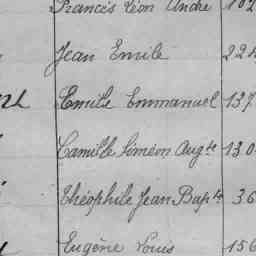 Francis Léon André 102
Jean Emile 224
Emile Emmanuel 137
Camille Siméon Augte 130
Théophile Jean Bapte 36
Eugène Louis 156